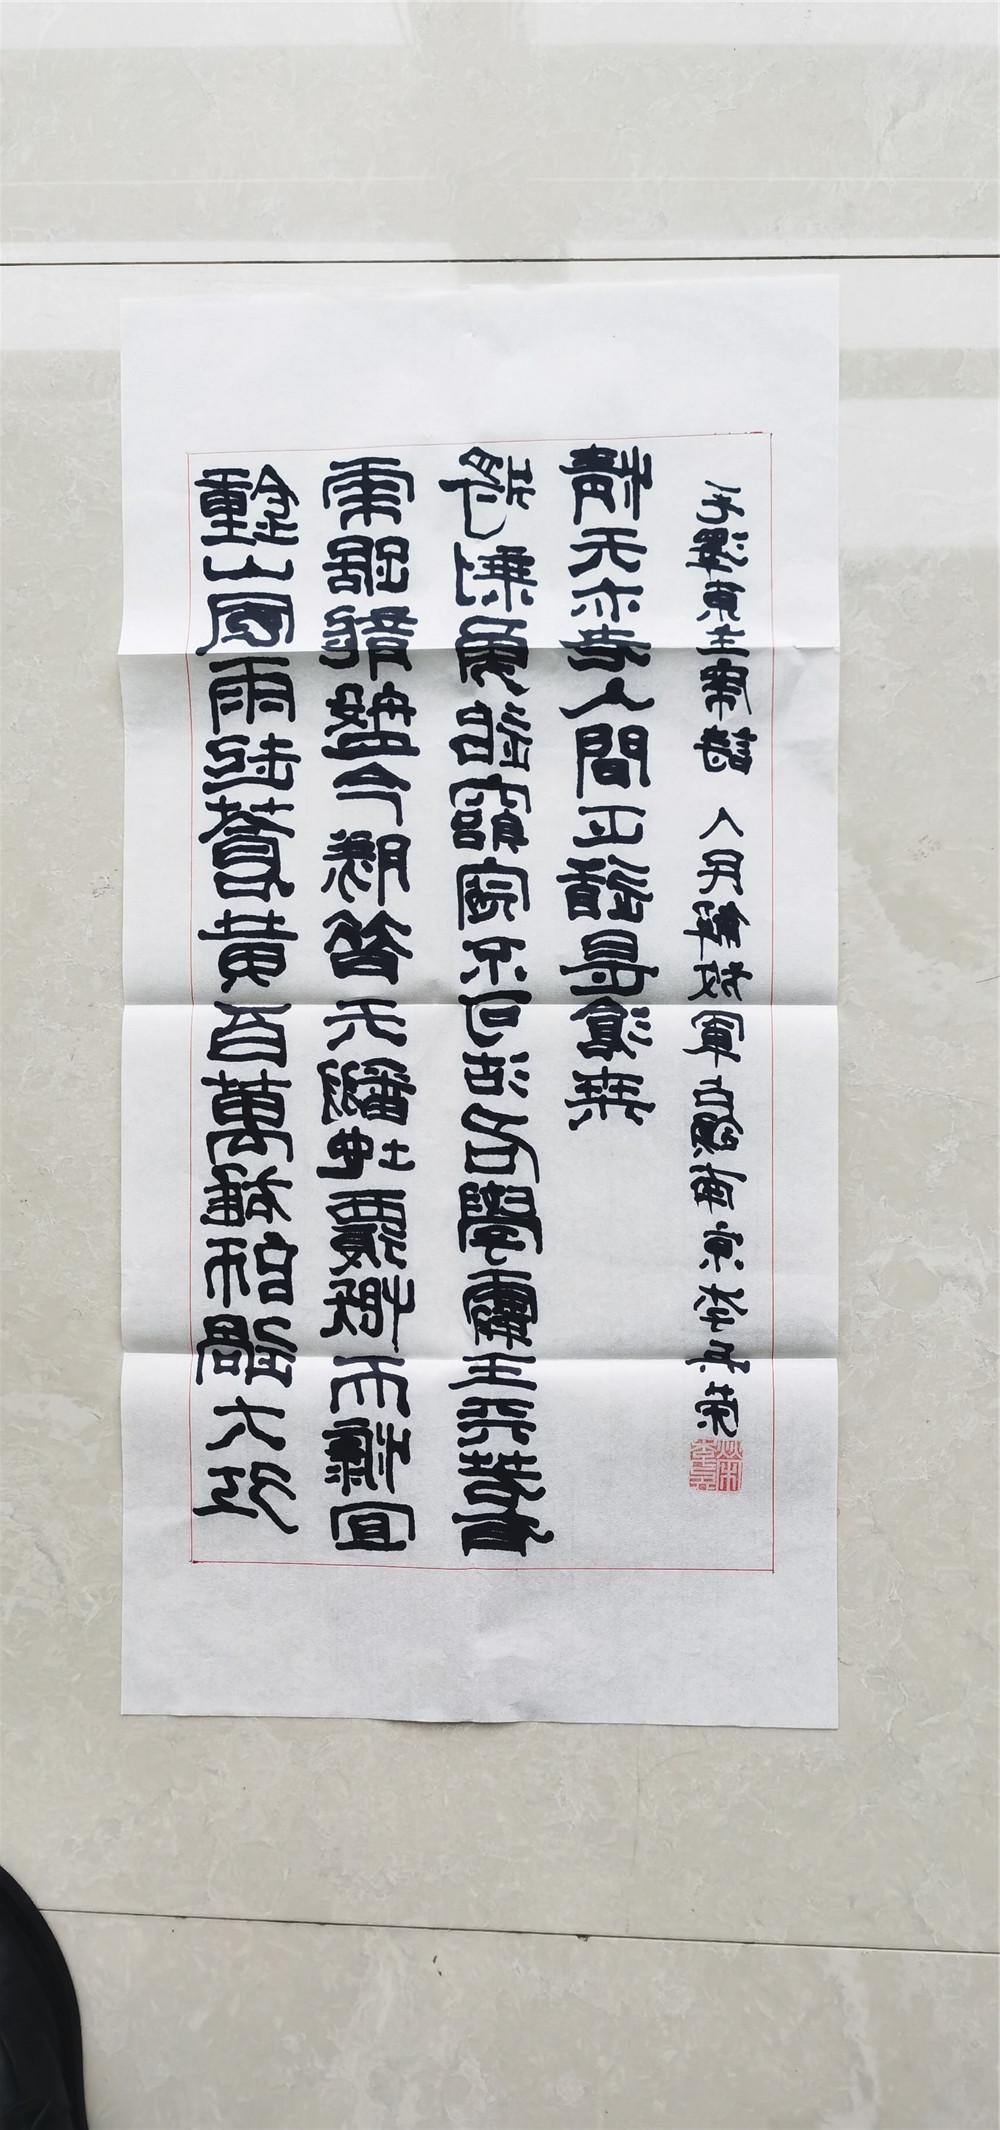 鐘山風雨起蒼黃百萬雄師過大江
虎踞龍盤今勝昔天翻地覆慨而慷宜
將剩勇追窮寇不可沽名學霸王天若有
情天亦老人間正道是滄桑
毛澤東主席詩 人民解放軍占領南京 李榮